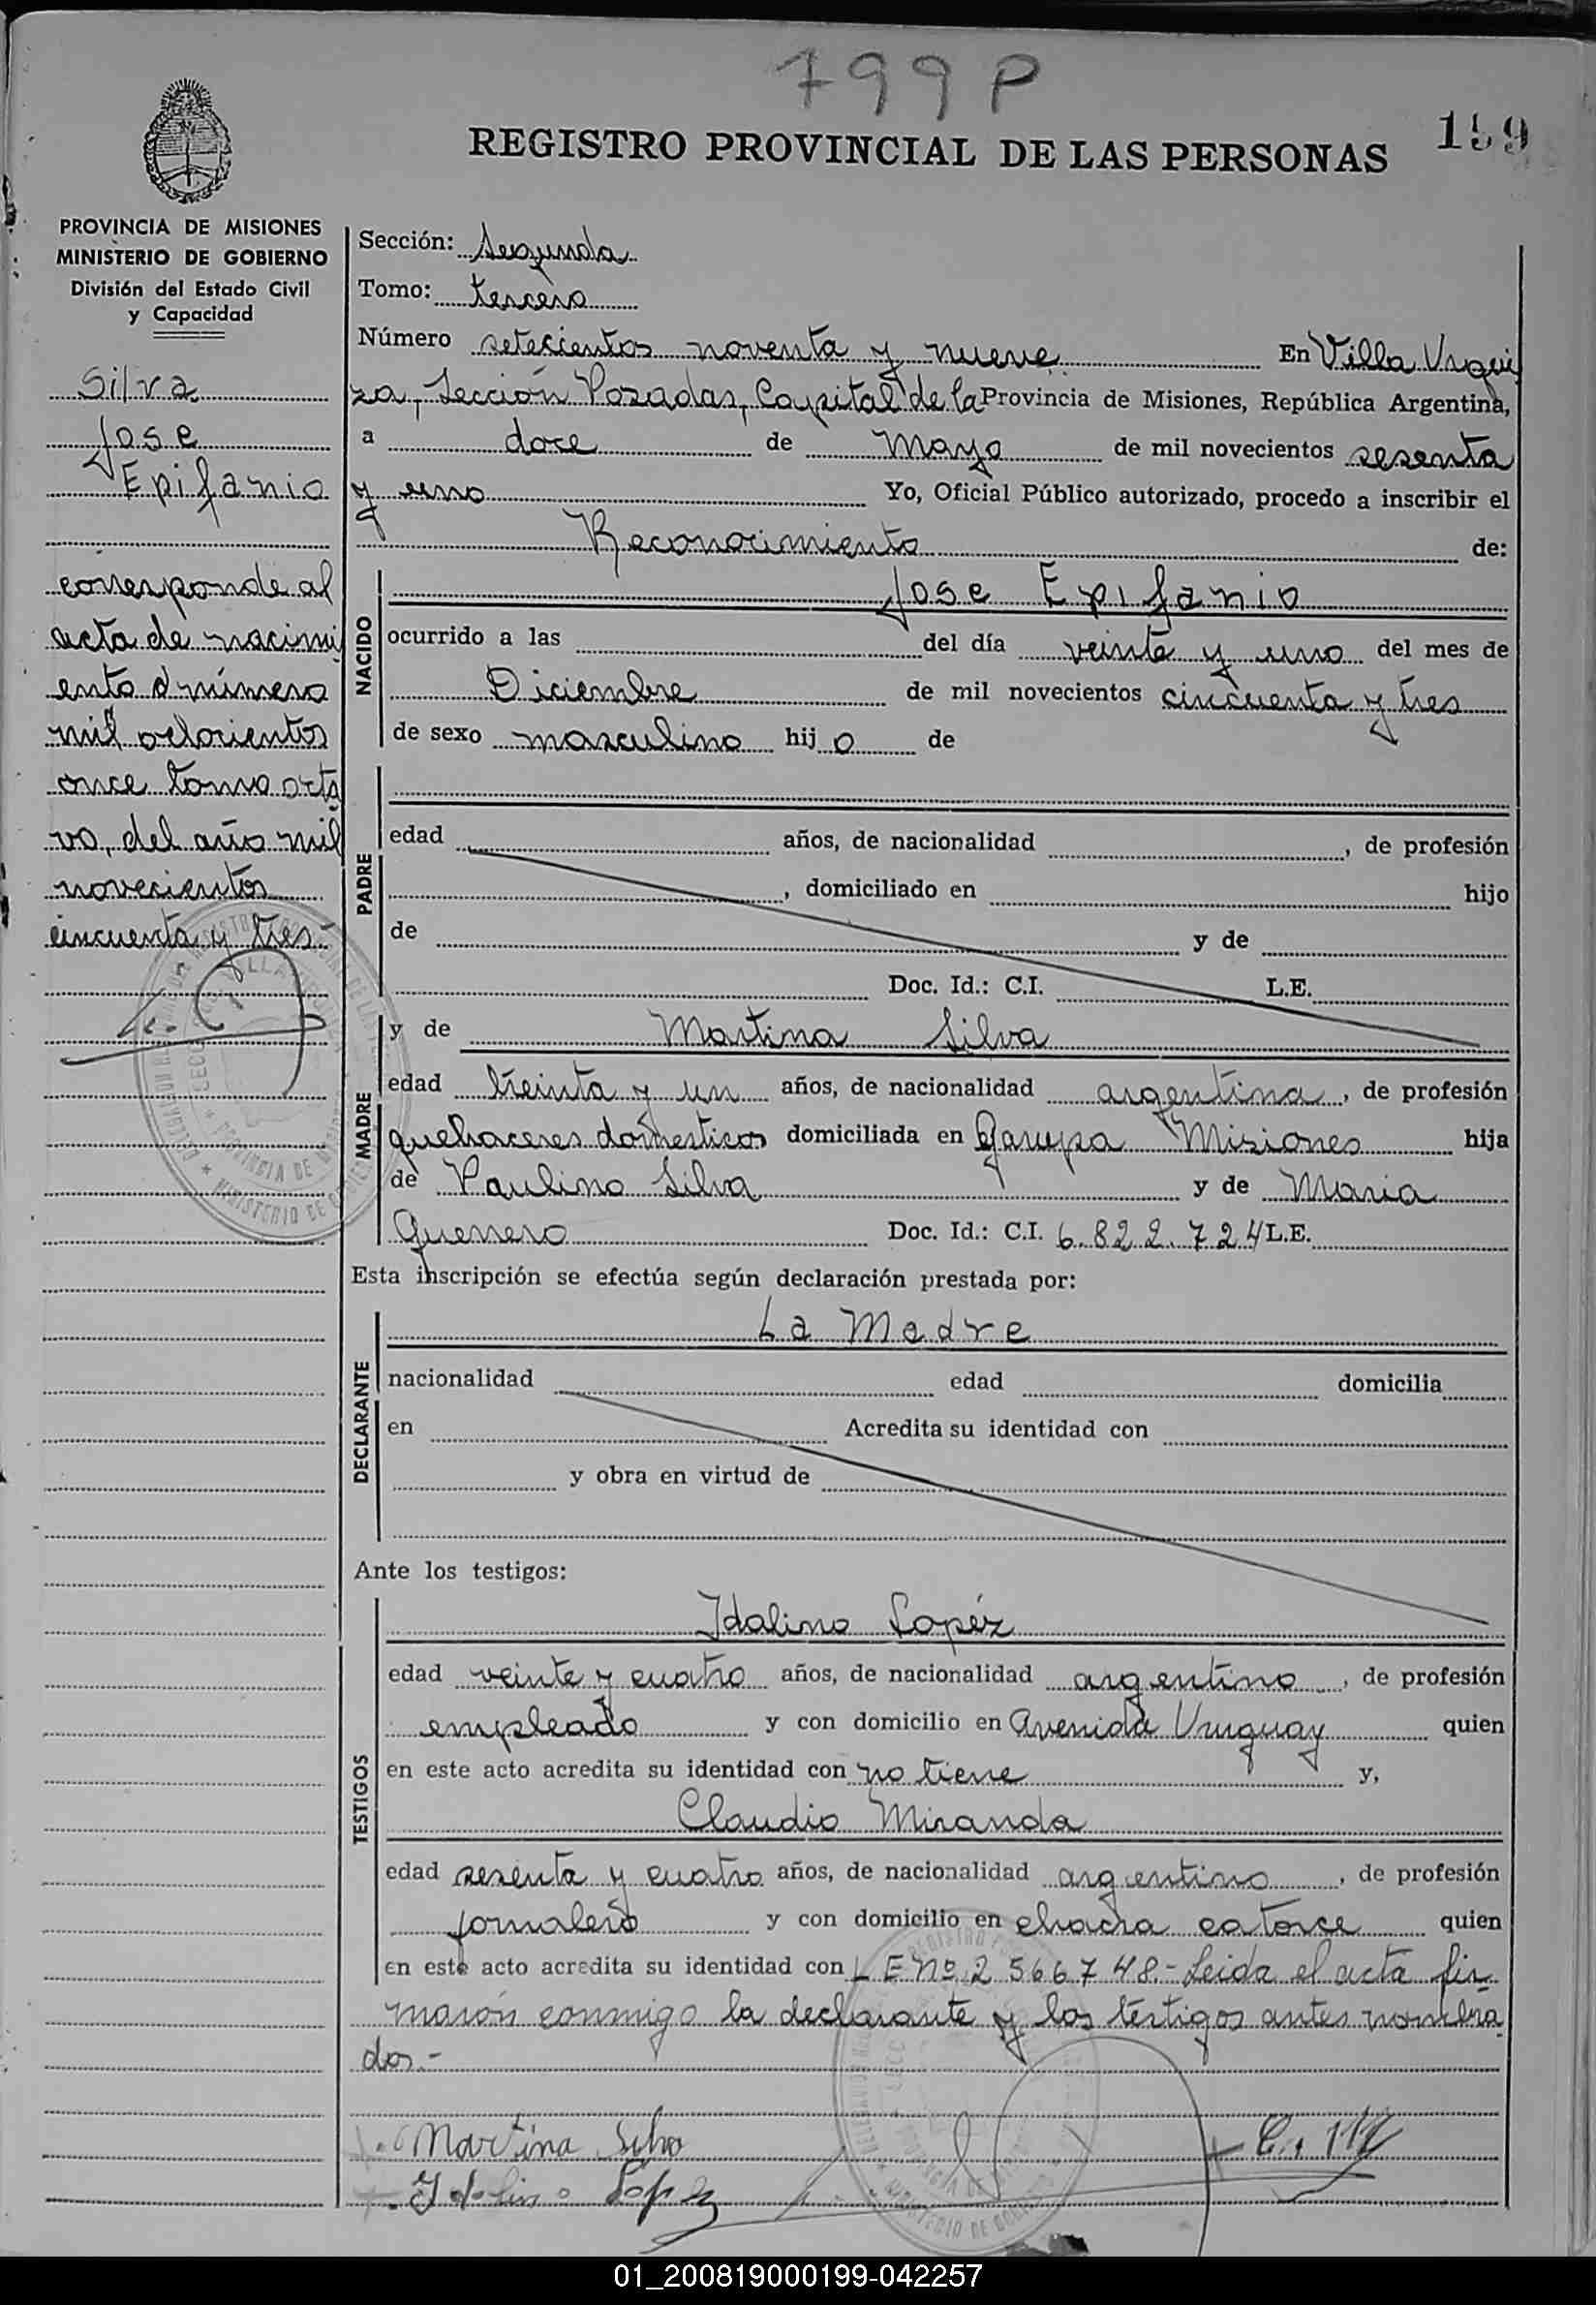 799 P
199
REGISTRO PROVINCIAL DE LAS PERSONAS
PROVINCIA DE MISIONES
MINISTERIO DE GOBIERNO
División del Estado Civil
y Capacidad
Silva
Jose
Epifanio
corresponde al
acta de nacimi
ento número
mil ochocientos
once tomo octa
vo, del año mil
novecientos
cincuenta y tres
Sección: Segunda
Tomo: tercero
Número setecientos noventa y nueve En Villa Urqui
za, Sección Posadas, Capital de la Provincia de Misiones, República Argentina,
a doce de Mayo de mil novecientos sesenta
y uno Yo, Oficial Público autorizado, procedo a inscribir el
Reconocimiento de:
NACIDO
Jose Epifanio
ocurrido a las del día veinte y uno del mes de
Diciembre de mil novecientos cincuenta y tres
de sexo masculino hijo de
PADRE
edad años, de nacionalidad , de profesión
, domiciliado en hijo
de y de
Doc. Id.: C.I. L.E.
MADRE
y de Martina Silva
edad treinta y un años, de nacionalidad argentina, de profesión
quehaceres domésticos domiciliada en Garupa Misiones hija
de Paulino Silva y de Maria
Guerrero Doc. Id.: C.I. 6.822.724 L.E.
Esta inscripción se efectúa según declaración prestada por:
DECLARANTE
La Madre
nacionalidad edad domicilia
en Acredita su identidad con
y obra en virtud de
Ante los testigos:
TESTIGOS
Idalino Lopéz
edad veinte y cuatro años, de nacionalidad argentino, de profesión
empleado y con domicilio en Avenida Uruguay quien
en este acto acredita su identidad con no tiene y,
Claudio Miranda
edad sesenta y cuatro años, de nacionalidad argentino, de profesión
jornalero y con domicilio en chacra catorce quien
en este acto acredita su identidad con L E Nº 2 566748.- Leida el acta fir
marón conmigo la declarante y los testigos antes nombra
dos.-
Martina Silva
Idalino Lopez
01_200819000199-042257